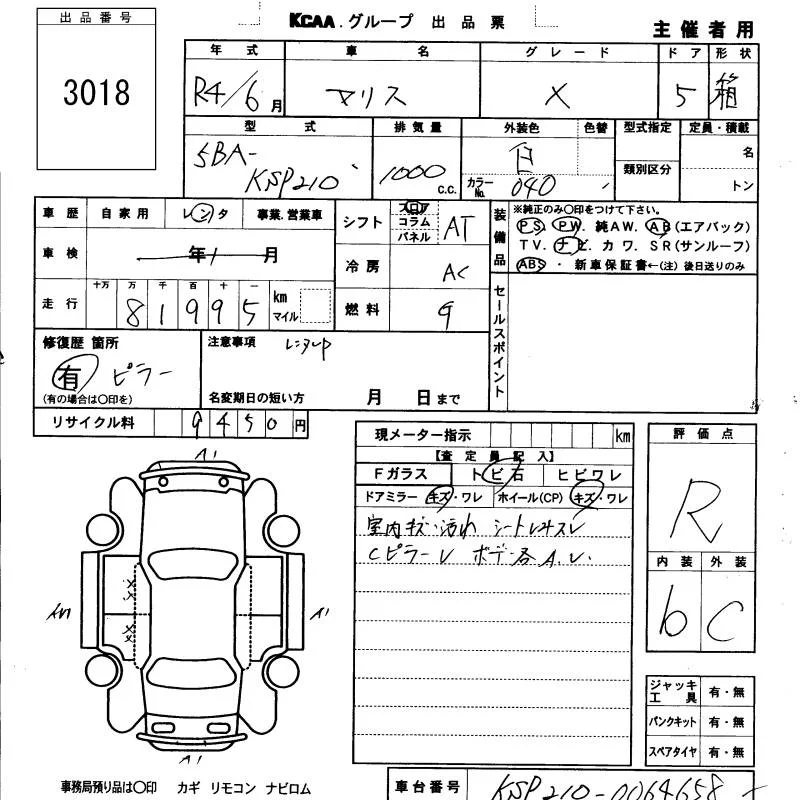 出品番号
3018
KCAA.グループ 出品票
主催者用
年式 車名 グレード ドア 形状
R4/6月 ヤリス X 5 箱
型式 排気量 外装色 色替 型式指定 定員・積載
5BA-
KSP210 1000 c.c. 白 カラーNo. 040 類別区分 名
トン
車歴 自家用 レンタ 事業.営業車
車検 年 月
走行 十万 万 千 百 十 一
81995 km
マイル
シフト フロア コラム パネル AT
冷房 AC
燃料 G
装備品
※純正のみ〇印をつけて下さい。
PS. PW. 純AW. AB(エアバック)
TV. ナビ. カワ. SR(サンルーフ)
ABS ・ 新車保証書←(注) 後日送りのみ
セールスポイント
修復歴 箇所
有 ピラー
(有の場合は〇印を)
注意事項 レンタUP
名変期日の短い方 月 日まで
リサイクル料 9450円
現メーター指示 km
【査定員記入】
Fガラス トビ石 ヒビワレ
ドアミラー キズ・ワレ ホイール(CP) キズ・ワレ
室内キズ・汚れ シート
Cピラーレ ボデー各A.U.
評価点
R
内装 外装
b C
A1
A1
ジャッキ工具 有・無
パンクキット 有・無
スペアタイヤ 有・無
事務局預り品は〇印 カギ リモコン ナビロム
車台番号 KSP210-0064658